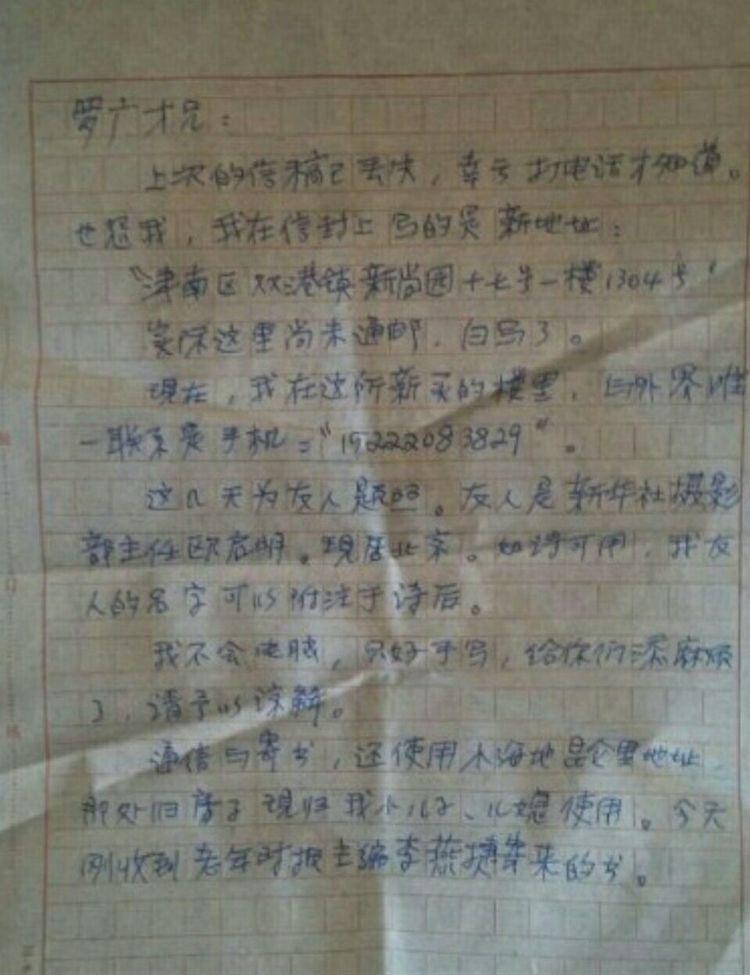 罗广才兄：
上次的信稿已丢失，幸亏打电话才知道。
也怨我，我在信封上写的是新地址：
“津南区双港镇新尚园十七号一楼1304号”
实际这里尚未通邮，白写了。
现在，我在这所新买的楼里，与外界唯
一联系是手机：“15222083829”。
这几天为友人题照。友人是新华社摄影
部主任。现居北京。如诗可用，我友
人的名字可以附注于诗后。
我不会电脑，只好手写，给你们添麻烦
了，请予以谅解。
通信与寄书，还使用小海地昆仑里地址，
那处旧房子现归我小儿子、儿媳使用。今天
刚收到老年时报主编李燕捷寄来的书。